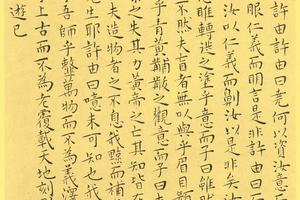 見許由許由曰堯何以資汝意
服仁義而明言是非許由曰
汝以仁義而劓汝以是非矣
睢轉徙之塗乎意而子曰雖然
不然夫盲者無以與乎眉目顏
乎青黃黼黻之觀意而子曰
之失其力黃帝之亡其知皆在
夫造物者之不息我黥而補
先生邪許由曰噫未可知也我
吾師乎齏萬物而不為義澤
於上古而不為老覆載天地刻
遊已